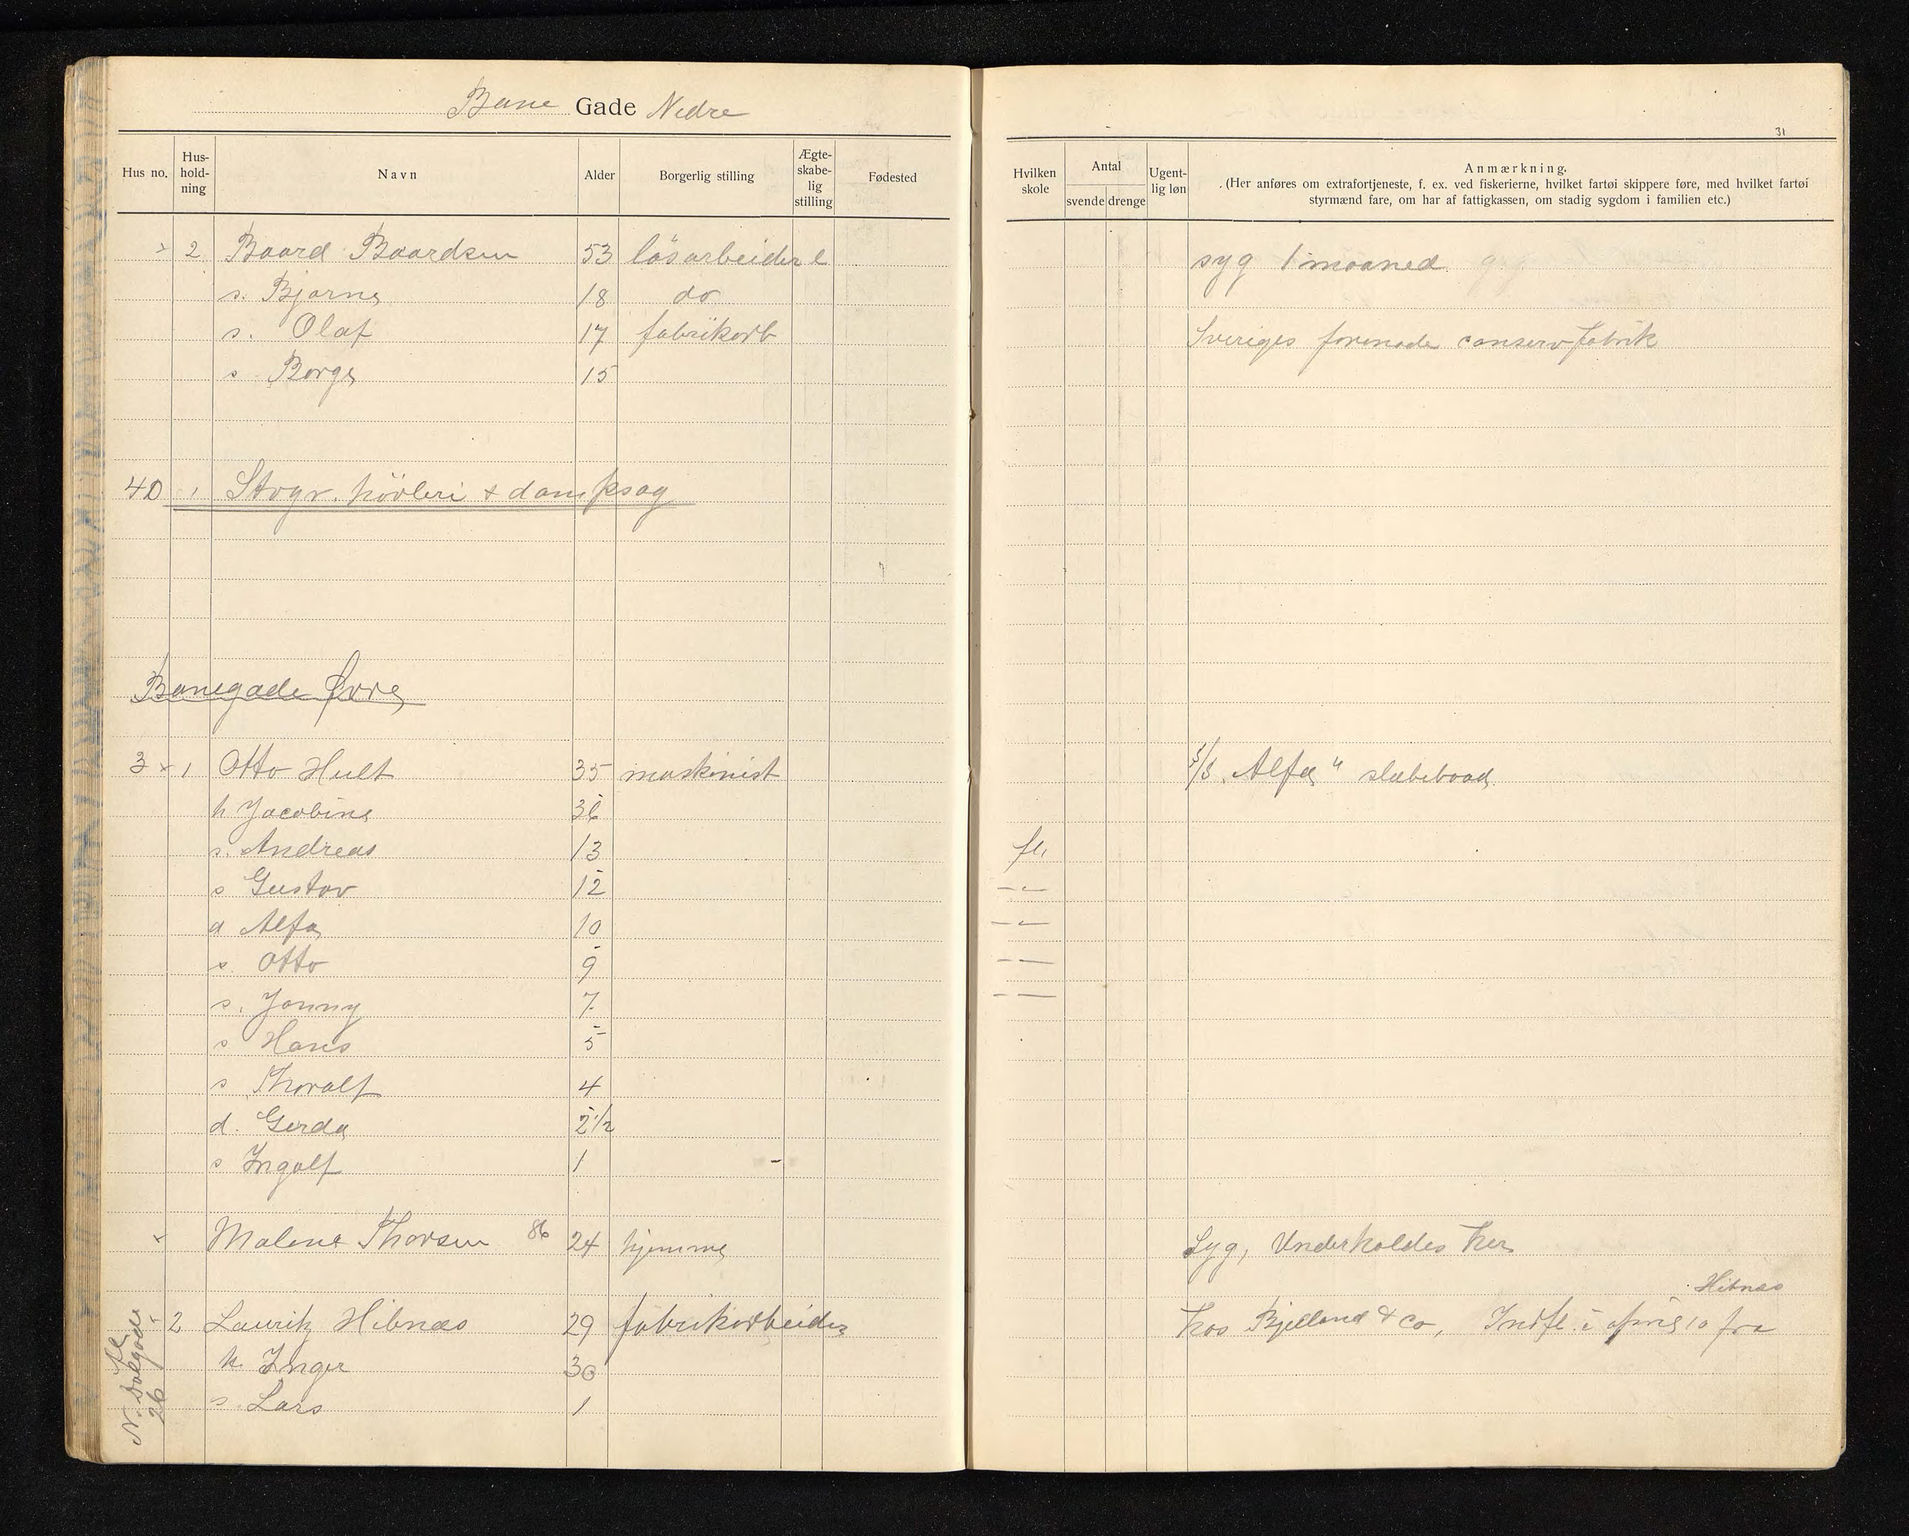 Bane Gade Nedre
31
Hus no. Hus-holdning Navn Alder Borgerlig stilling Ægte-skabe-lig stilling Fødested Hvilken skole Antal svende drenge Ugent-lig løn Anmærkning.
(Her anføres om extrafortjeneste, f. ex. ved fiskerierne, hvilket fartøi skippere føre, med hvilket fartøi
styrmænd fare, om har af fattigkassen, om stadig sygdom i familien etc.)
2 Baard Baardsen 53 løsarbeider e syg 1 maaned
s. Bjarne 18 do
s. Olaf 17 fabrikarb Sveriges forenade conservfabrik
s Borge 15
40 1 Stogr. høvleri & dampsag
Banegade Øvre
3 1 Otto Hult 35 maskinist S/S "Alfa" slæbebaad.
h Jacobine 36
s. Andreas 13 fl.
s Gustav 12 — " —
d Alfa 10 — " —
s. Otto 9 — —
s. Jonny 7 — —
s Hans 5
s Thoralf 4
d. Gerda 2 1/2
s Ingolf 1
Malene Thorsen 86 24 hjemme Syg, Underholdes her
Hibnæs
2 Lauritz Hibnæs 29 fabrikarbeider hos Bjelland & Co, Indfl. i april 10 fra
h. Inger 30
s. Lars 1
fl
N. Dalgade
26